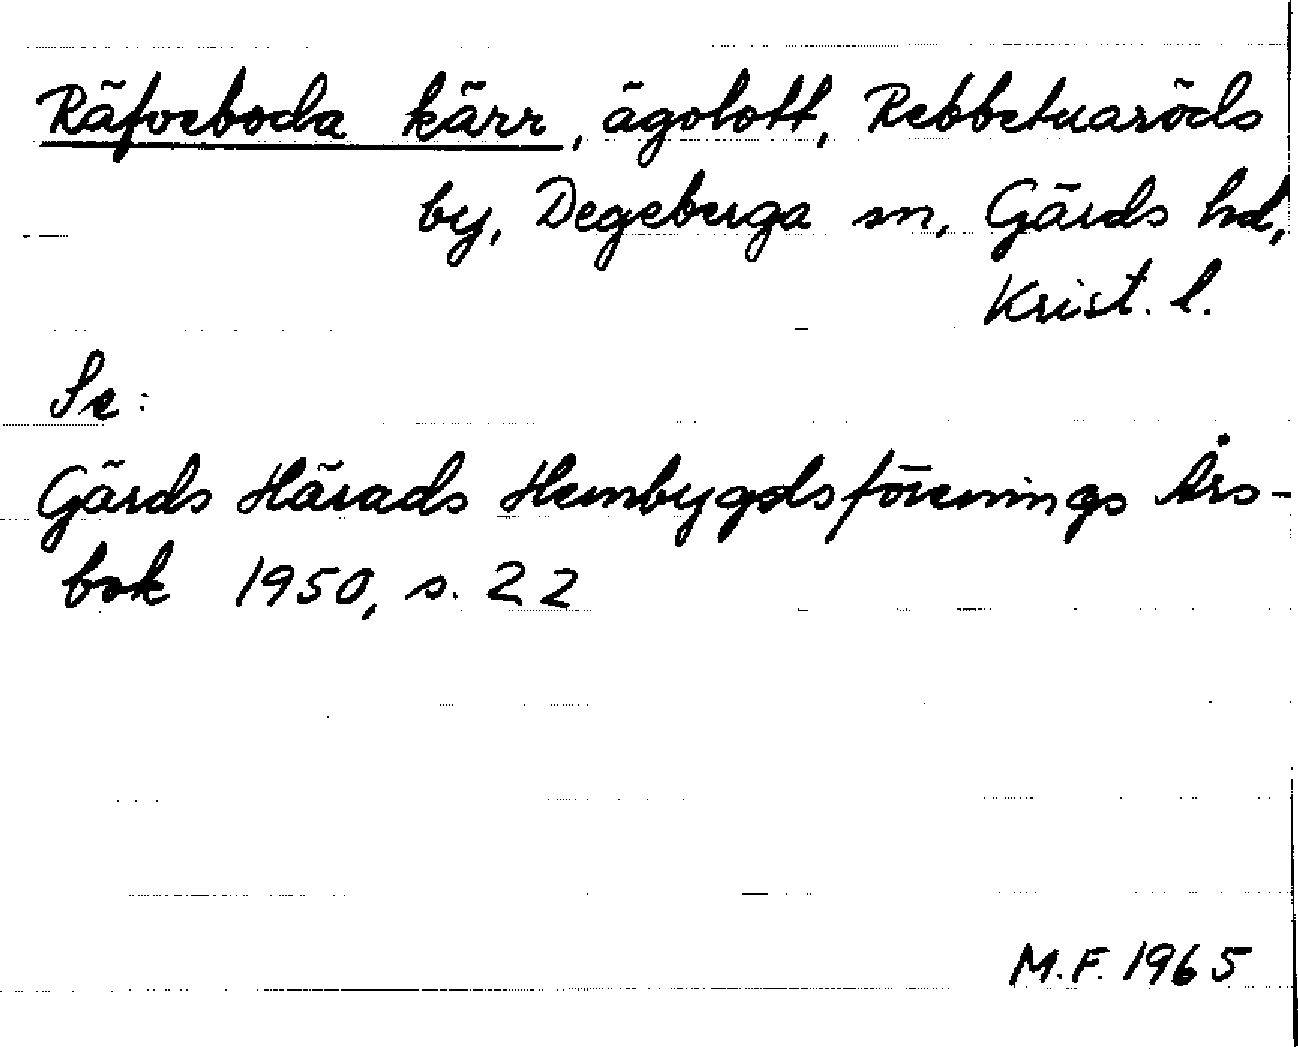 Räfveboda kärr, ägolott, Rebbetuaröds
by, Degeberga sn, Gärds hd,
Krist. l.
Se:
Gärds Härads Hembygdsförenings Års-
bok 1950, s. 22
M.F. 1965